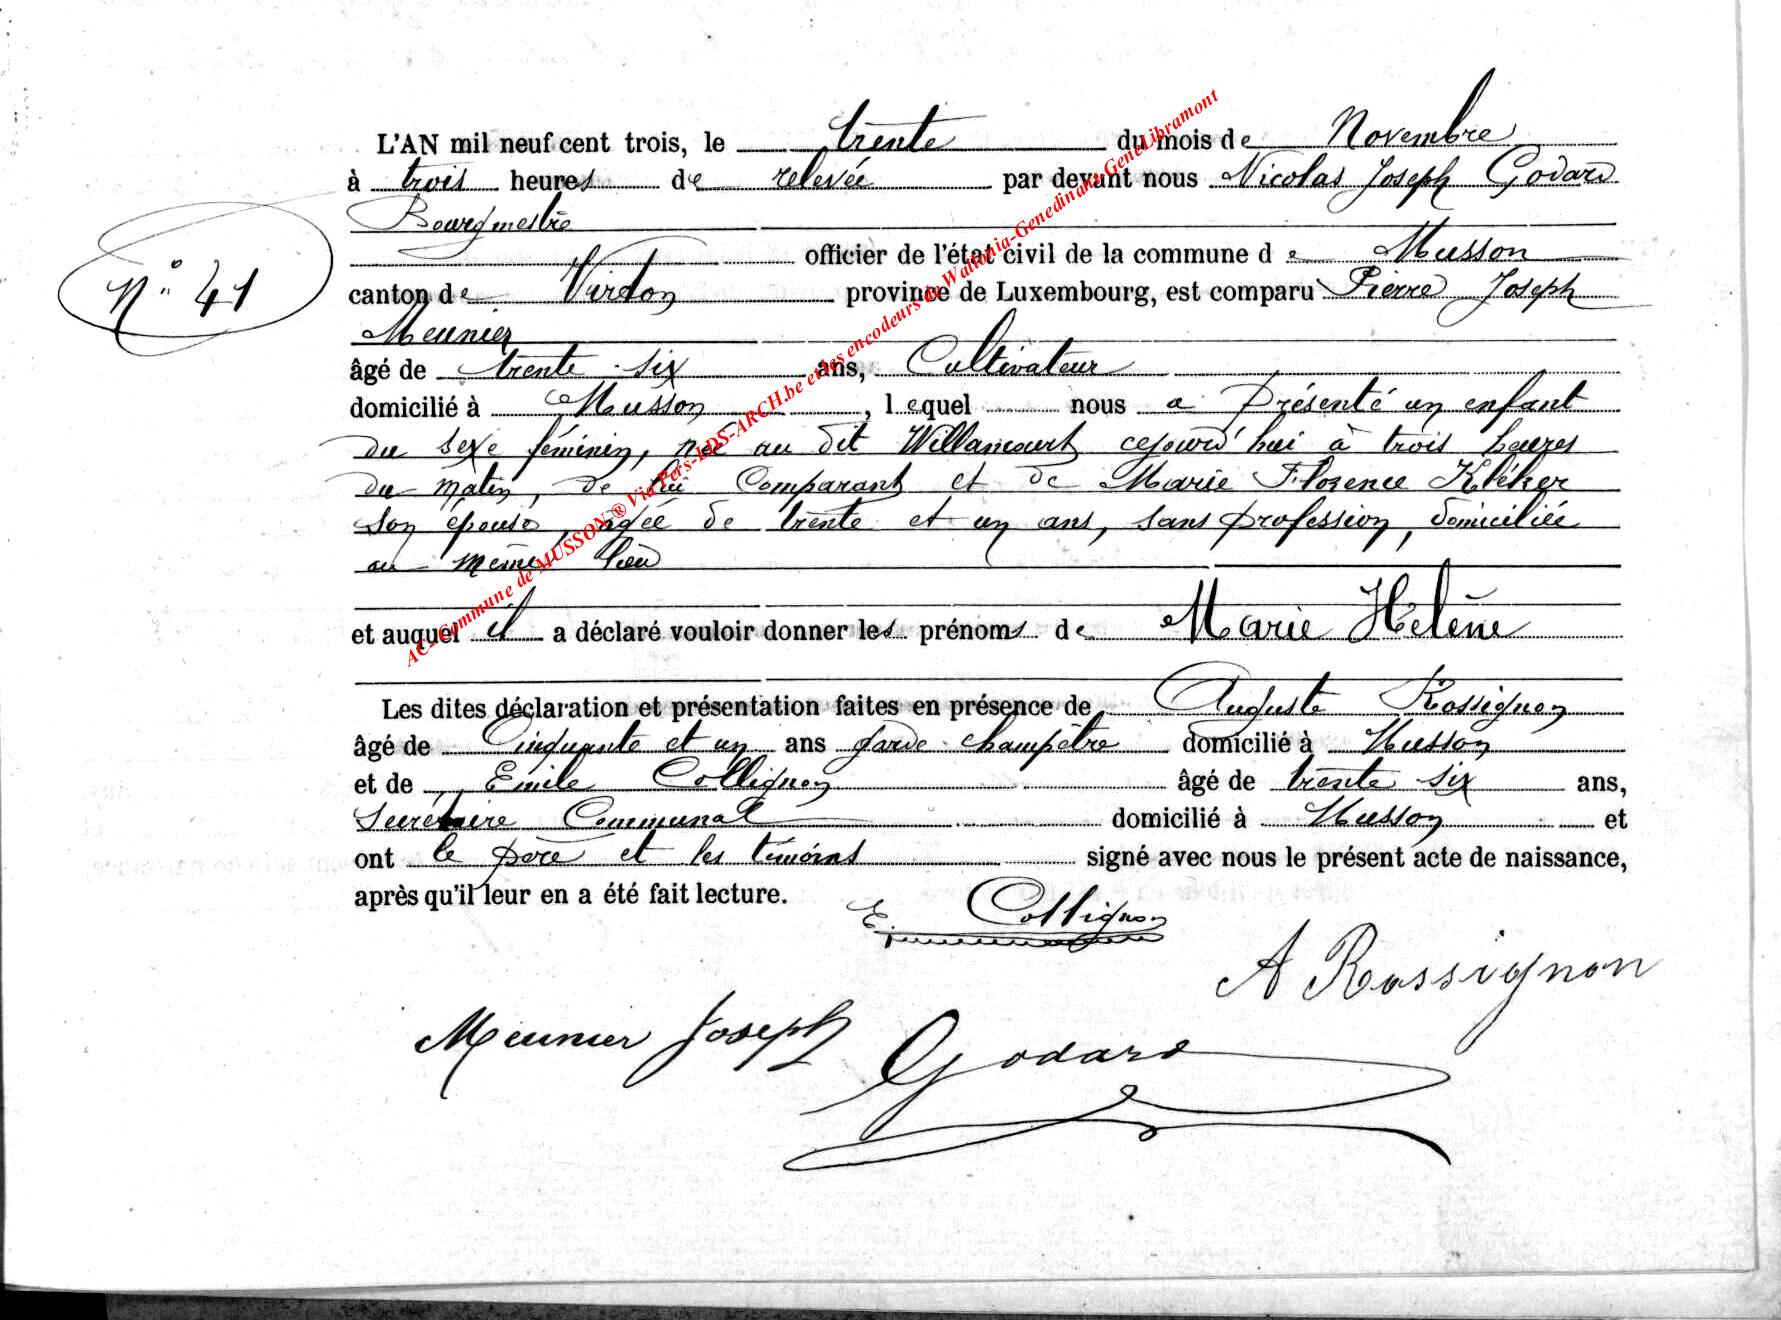 L'AN mil neuf cent trois, le trente du mois de Novembre
à trois heures de relevée par devant nous Nicolas Joseph Godard
Bourgmestre
officier de l'état civil de la commune de Musson
N° 41
canton de Virton province de Luxembourg, est comparu Pierre Joseph
Meunier
âgé de trente six ans, Cultivateur
domicilié à Musson, lequel nous a présenté un enfant
du sexe féminin, né au dit Willancourt cejourd'hui à trois heures
du matin, de lui Comparant et de Marie Florence Kléker
son épouse, agée de trente et un ans, sans profession, domiciliée
au même lieu
et auquel il a déclaré vouloir donner les prénoms de Marie Helène
Les dites déclaration et présentation faites en présence de Auguste Rossignon
âgé de Cinquante et un ans garde-champêtre domicilié à Musson
et de Emile Collignon âgé de trente six ans,
Secrétaire Communal domicilié à Musson et
ont le père et les témoins signé avec nous le présent acte de naissance,
après qu'il leur en a été fait lecture.
E. Collignon
A Rossignon
Meunier Joseph
Godard
AC-Commune de MUSSON ® Via Pers-LDS-ARCH.be et les encodeurs de Wallonia-Genedinant-GeneLibramont